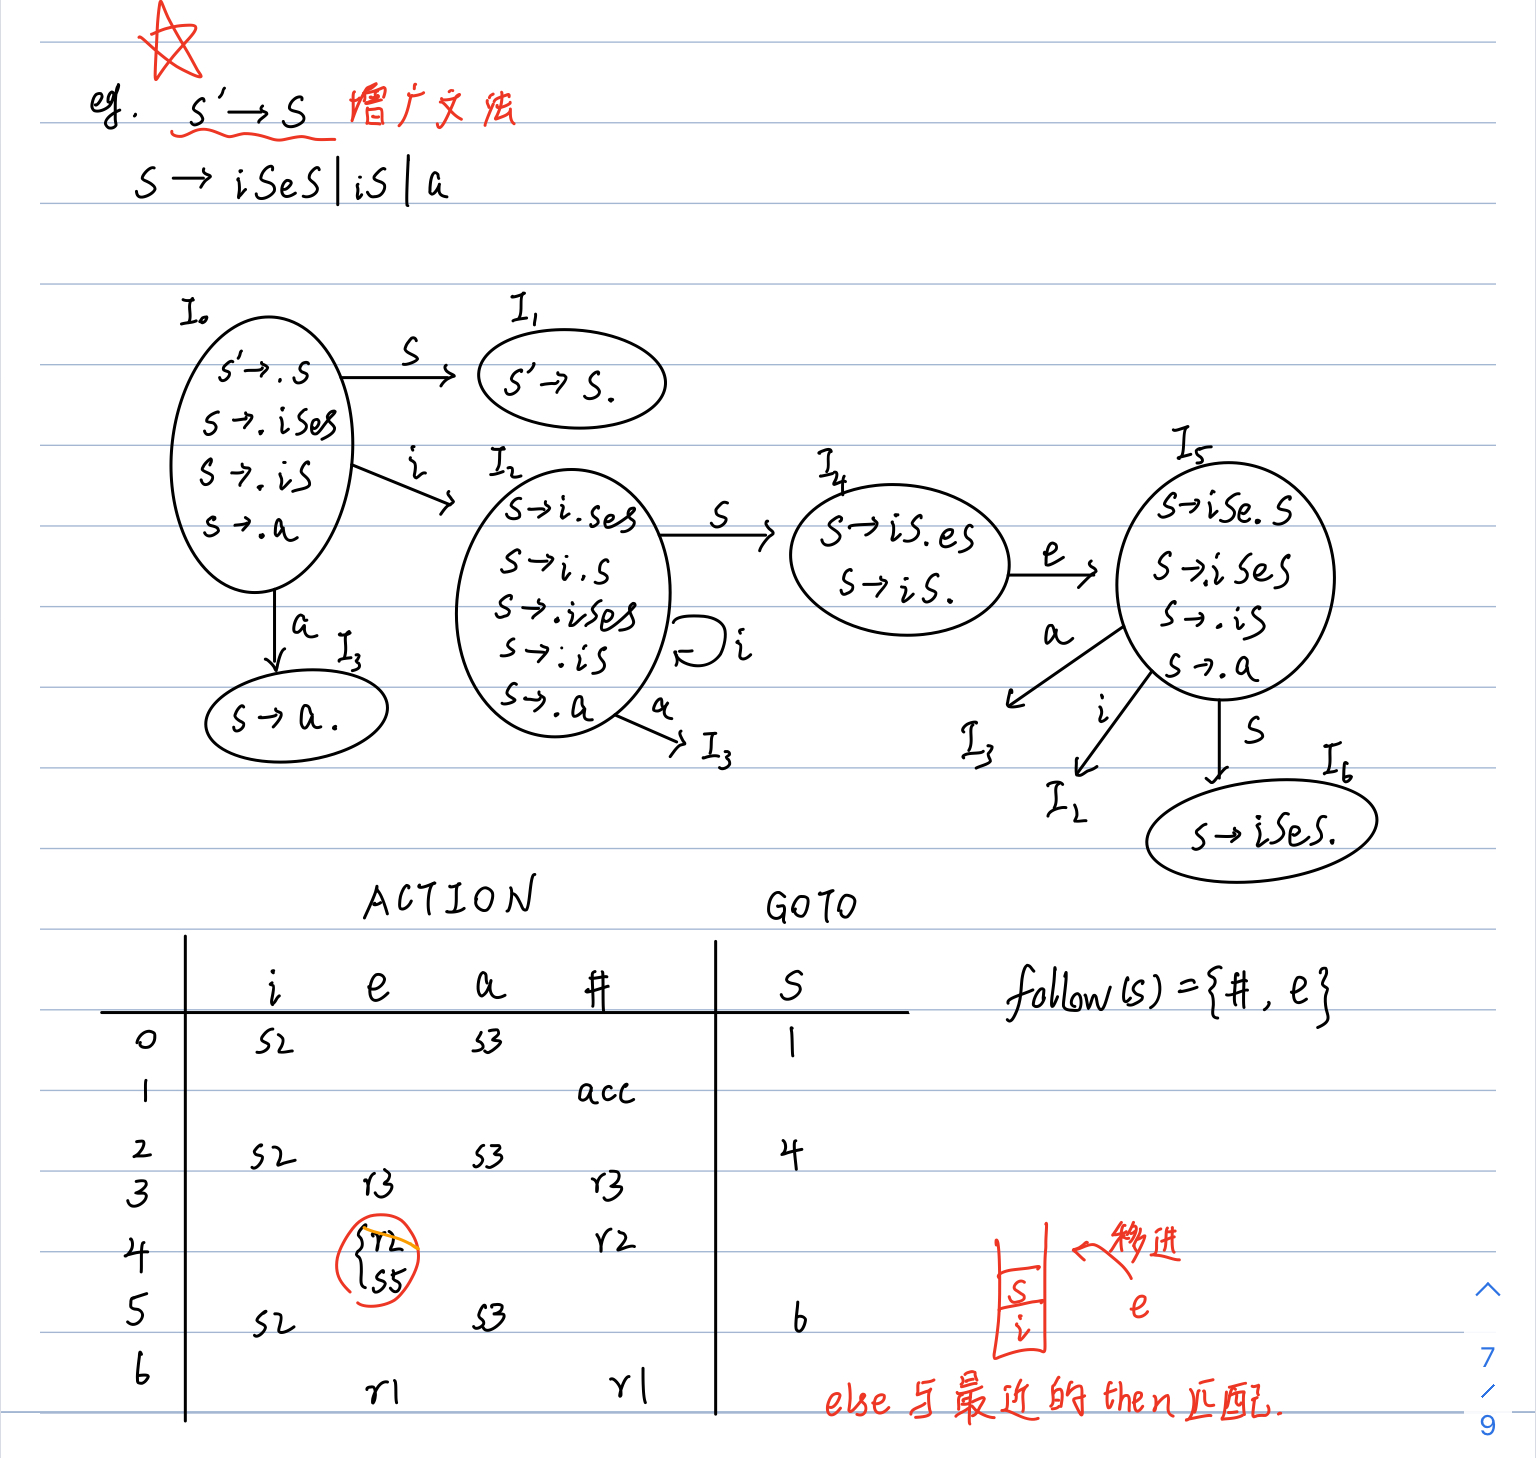 eg. S' → S 增广文法
S → iSeS | iS | a
I₀
S' → .S
S → .iSeS
S → .iS
S → .a
S
I₁
S' → S.
i
I₂
S → i.SeS
S → i.S
S → .iSeS
S → .iS
S → .a
i
a
I₃
S
I₄
S → iS.eS
S → iS.
e
I₅
S → iSe.S
S → .iSeS
S → .iS
S → .a
a
I₃
i
I₂
S
I₆
S → iSeS.
a
I₃
S → a.
ACTION GOTO
i e a # S
0 s2 s3 1
1 acc
2 s2 s3 4
3 r3 r3
4 { r2 s5 r2
5 s2 s3 6
6 r1 r1
follow(S) = {#, e}
移进
S
i
e
else 与最近的 then 匹配.
7
/
9